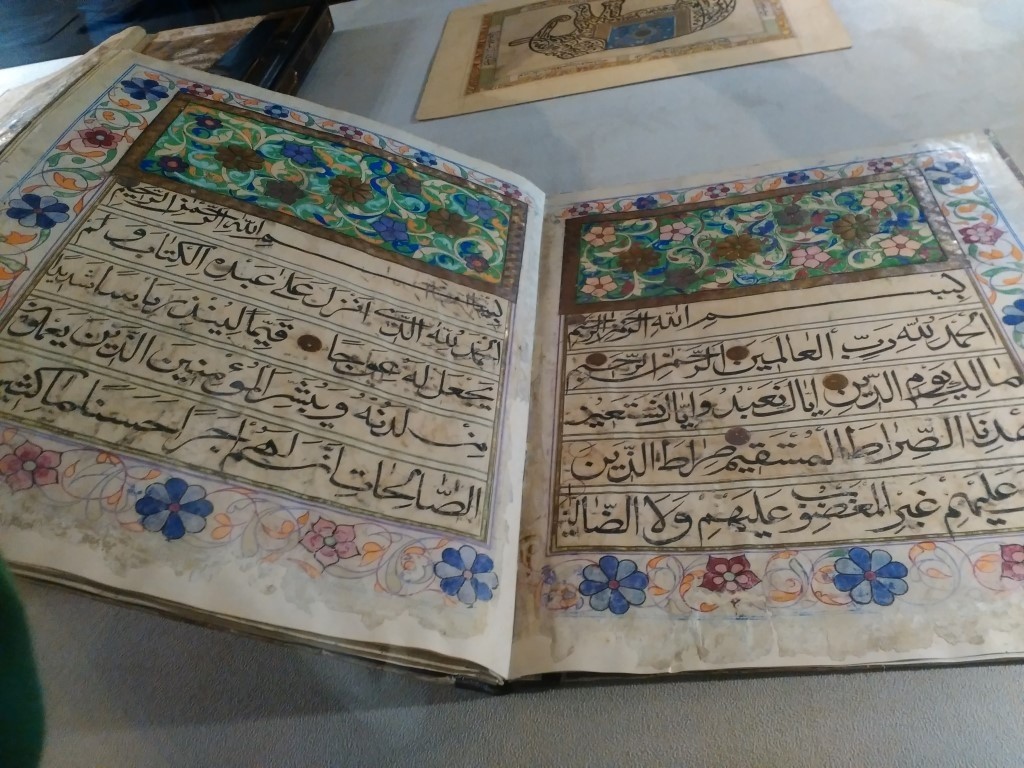 بسم الله الرحمن الرحيم
الحمد لله رب العالمين الرحمن الرحيم
مالك يوم الدين اياك نعبد واياك نستعين
هدنا الصراط المستقيم صراط الذين
عليهم غير المغضوب عليهم ولا الضالين
بسم الله الرحمن الرحيم
الحمد لله الذي انزل على عبده الكتاب و لم
يجعل له عوجا قيما لينذر باسا شديدا
من لدنه ويبشر المؤمنين الذين يعملو
الصالحات ان لهم اجرا حسنا ماكثين